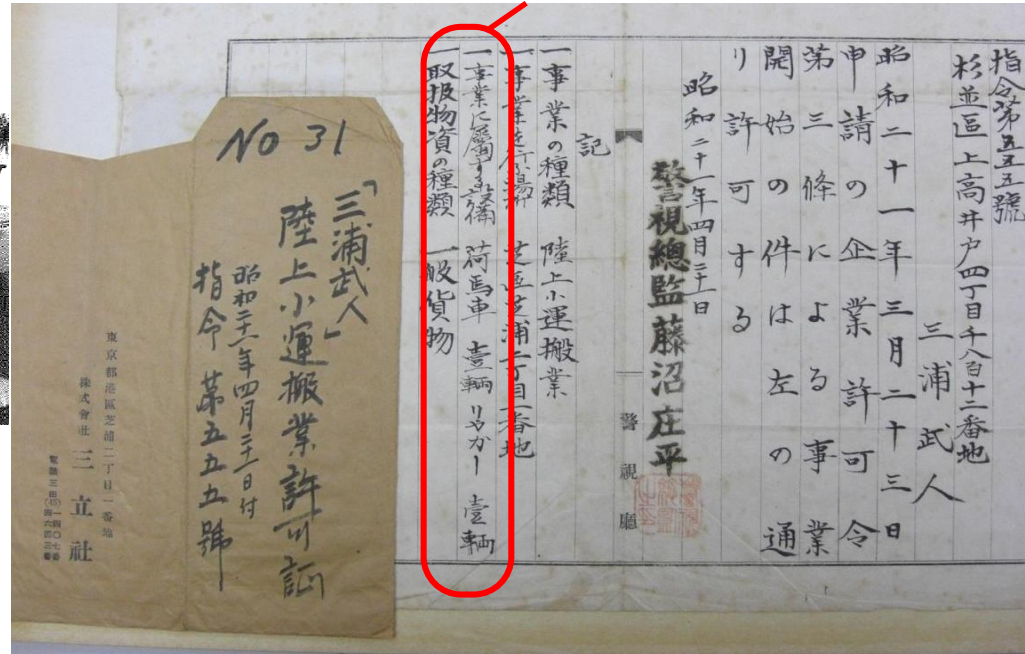 指令第五五五號
杉並區上高井戸四丁目千八百十二番地
三浦武人
昭和二十一年三月二十三日
申請の企業許可令
第三條による事業
開始の件は左の通
り許可する
昭和二十一年四月二十一日
警視總監藤沼庄平
警視廳
記
一事業の種類 陸上小運搬業
一事業を行ふ場所 芝區芝浦二丁目一番地
一事業に屬する設備 荷馬車 壹輛 リヤカー 壹輛
一取扱物資の種類 一般貨物
NO 31
「三浦武人」
陸上小運搬業許可証
昭和二十一年四月二十一日付
指令第五五五號
東京都港區芝浦二丁目一番地
株式會社 三立社
電話三田